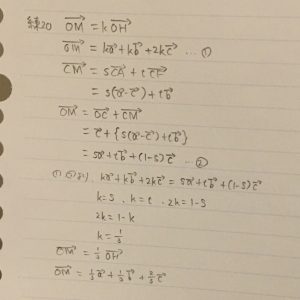 練20 OM = kOH
OM = ka + kb + 2kc … ①
CM = sCA + tCF
= s(a - c) + tb
OM = OC + CM
= c + {s(a - c) + tb}
= sa + tb + (1-s)c … ②
①②より、ka + kb + 2kc = sa + tb + (1-s)c
k=s、k=t、2k=1-s
2k=1-k
k=1/3
OM = 1/3 OH
OM = 1/3 a + 1/3 b + 2/3 c